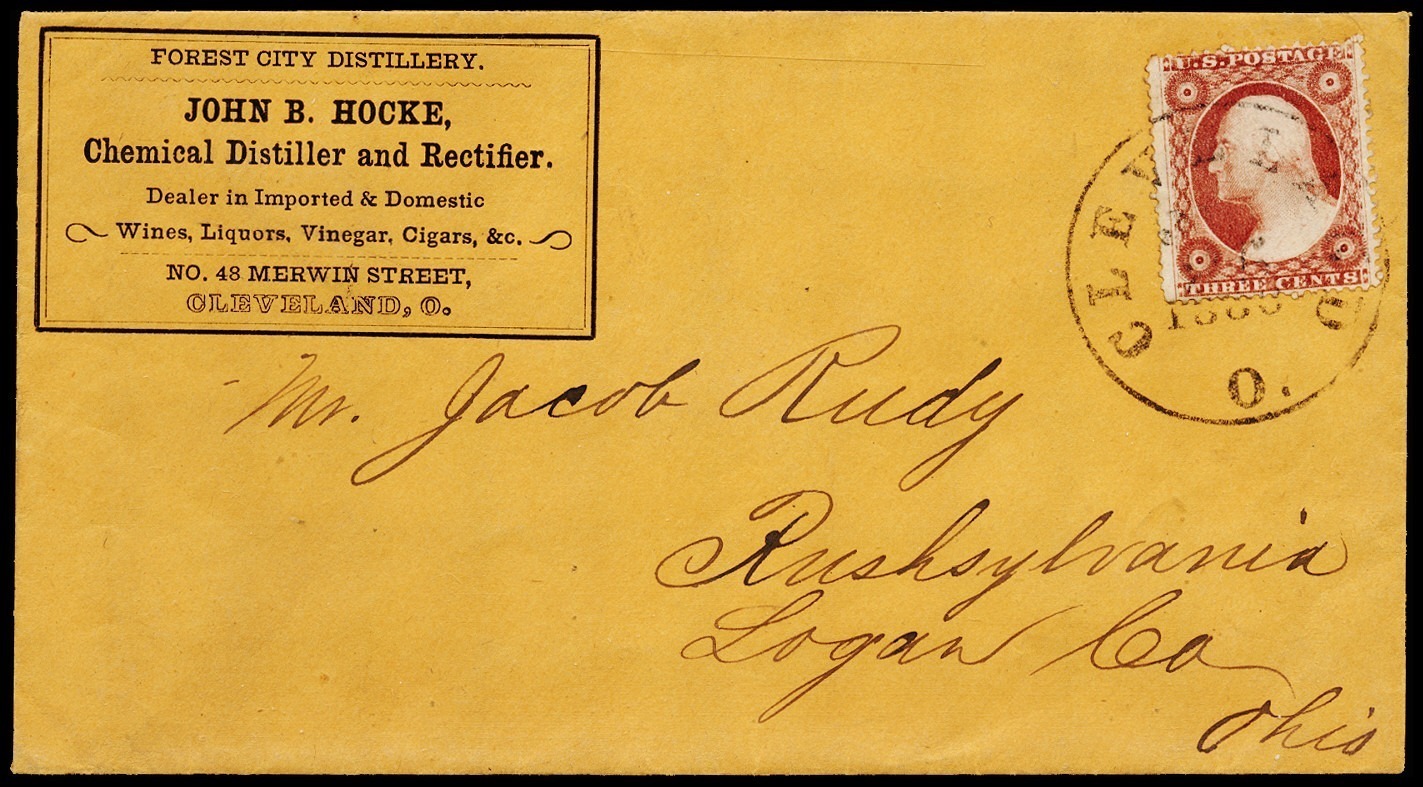 FOREST CITY DISTILLERY.
JOHN B. HOCKE,
Chemical Distiller and Rectifier.
Dealer in Imported & Domestic
Wines, Liquors, Vinegar, Cigars, &c.
NO. 48 MERWIN STREET,
CLEVELAND, O.
U.S. POSTAGE
THREE CENTS
CLEVELAND
O.
Mr. Jacob Rudy
Rushsylvania
Logan Co
Ohio